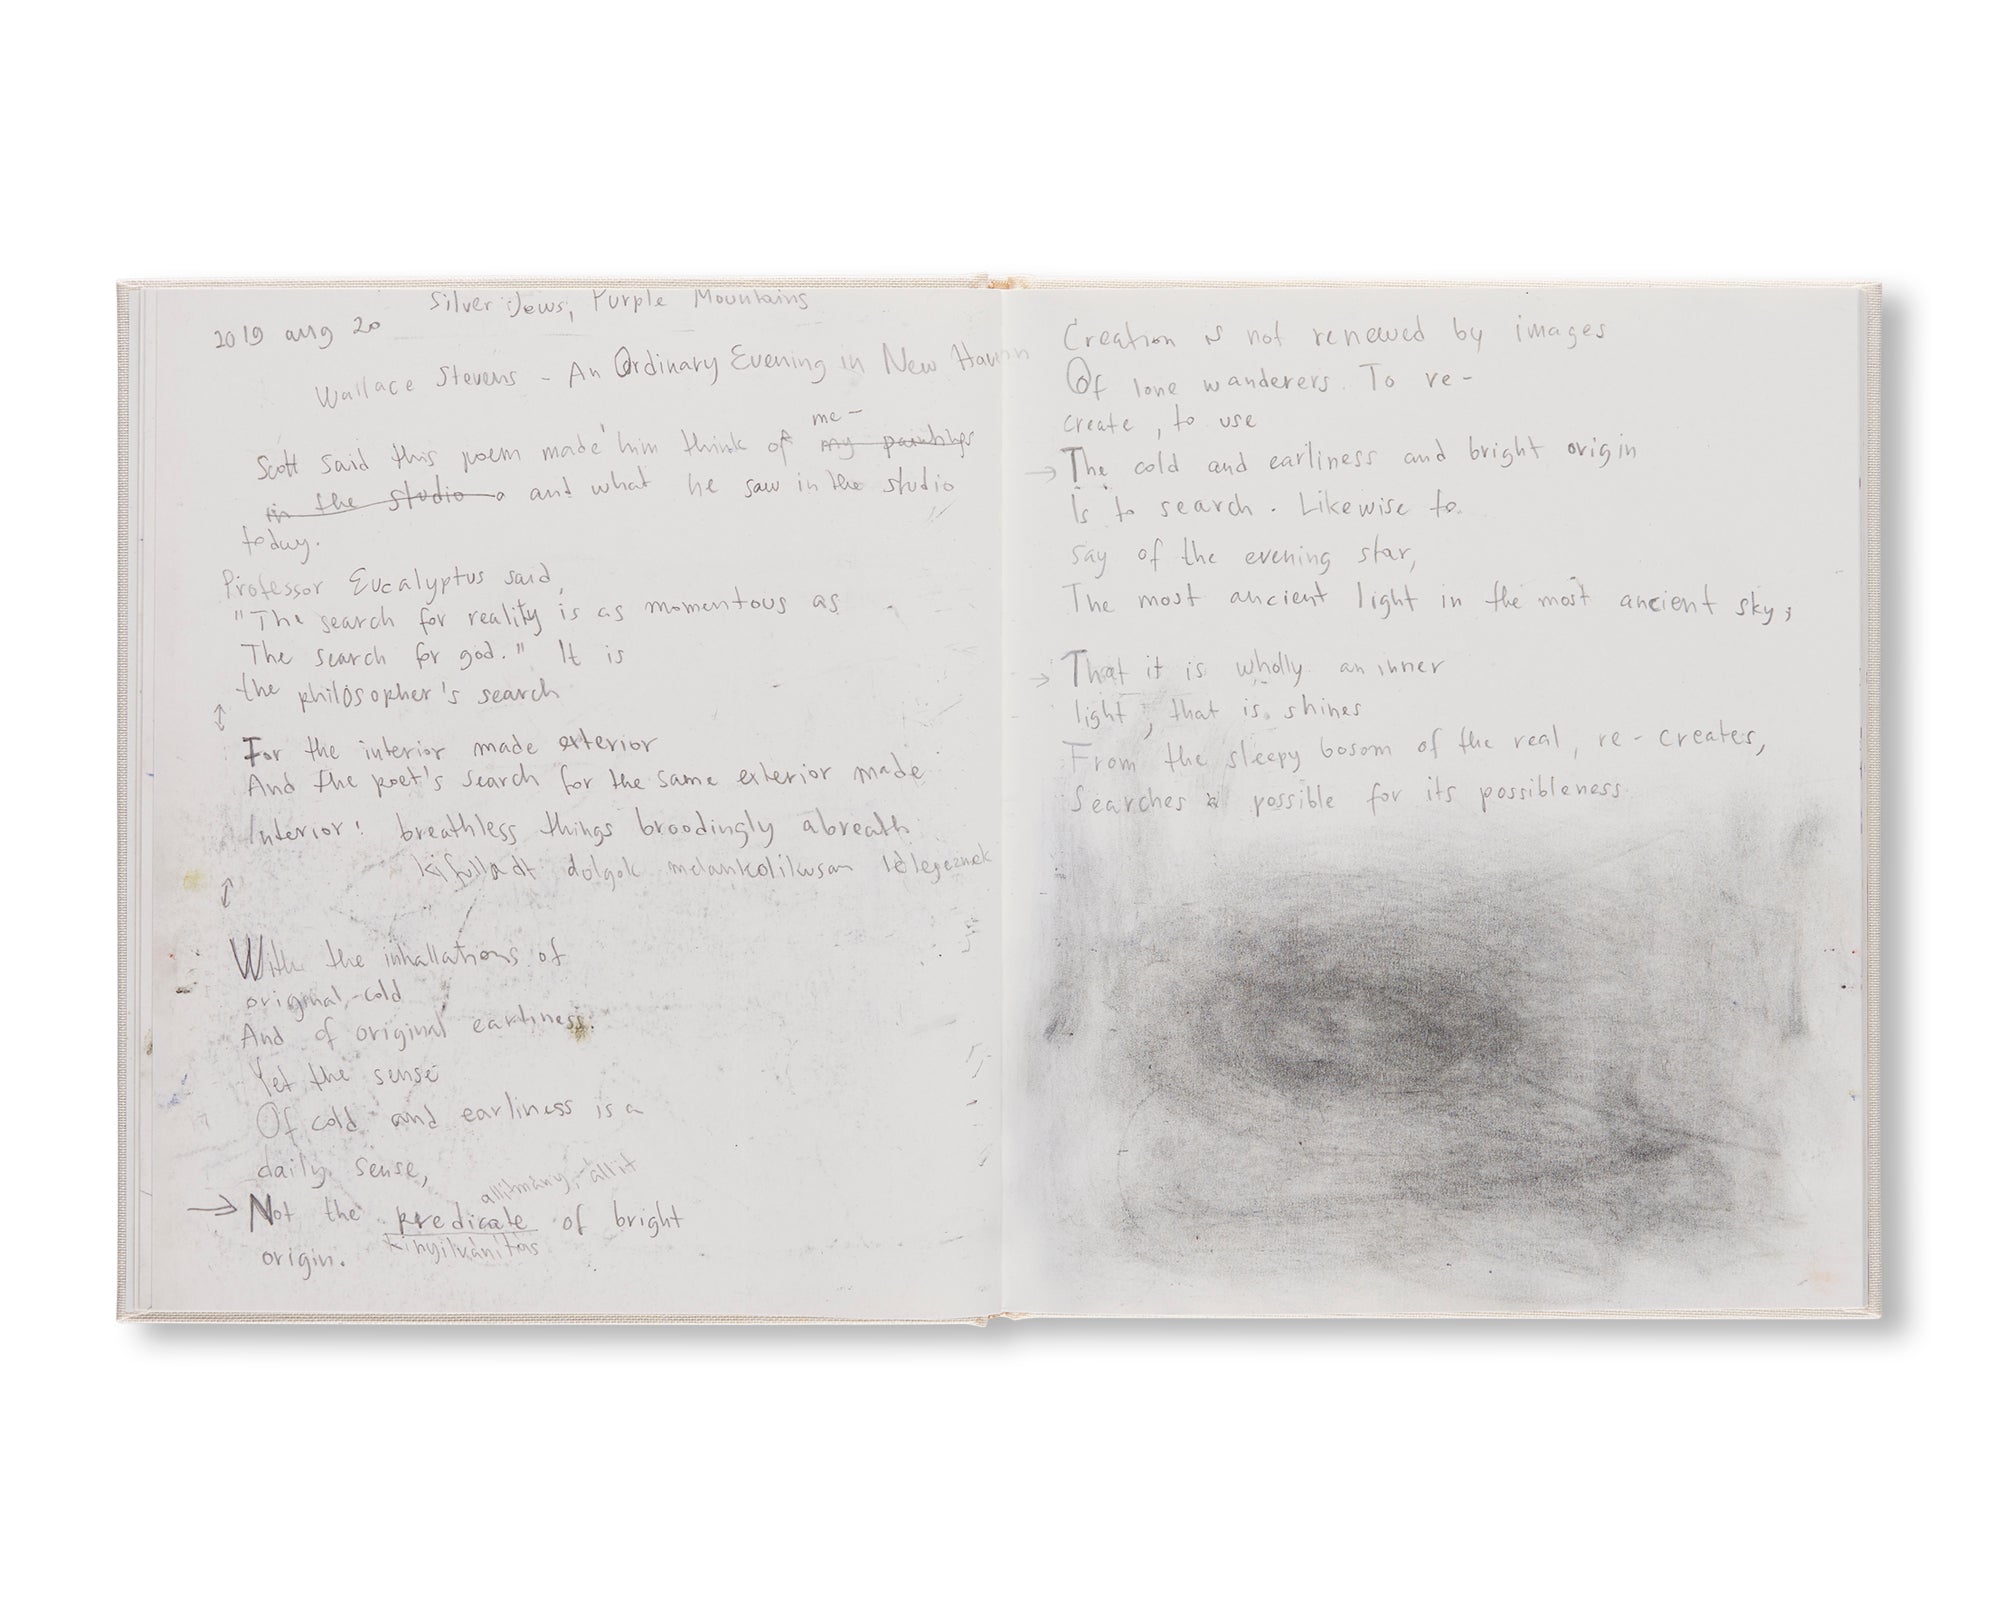 Silver Jews, Purple Mountains
2019 aug 20
Wallace Stevens - An Ordinary Evening in New Haven
me -
Scott said this poem made him think of my paintings
in the studio a and what he saw in the studio
today.
Professor Eucalyptus said,
"The search for reality is as momentous as
The search for god." It is
the philosopher's search
For the interior made exterior
And the poet's search for the same exterior made
Interior: breathless things broodingly abreath
kifulladt dolgok melankolikusan lélegeznek
With the inhallations of
original cold
And of original earliness.
Yet the sense
Of cold and earliness is a
daily sense,
állítmány, állít
Not the predicate of bright
kinyilvánítás
origin.
Creation is not renewed by images
Of lone wanderers. To re-
create, to use
The cold and earliness and bright origin
Is to search. Likewise to
say of the evening star,
The most ancient light in the most ancient sky,
That it is wholly an inner
light, that is shines
From the sleepy bosom of the real, re-creates,
Searches a possible for its possibleness.